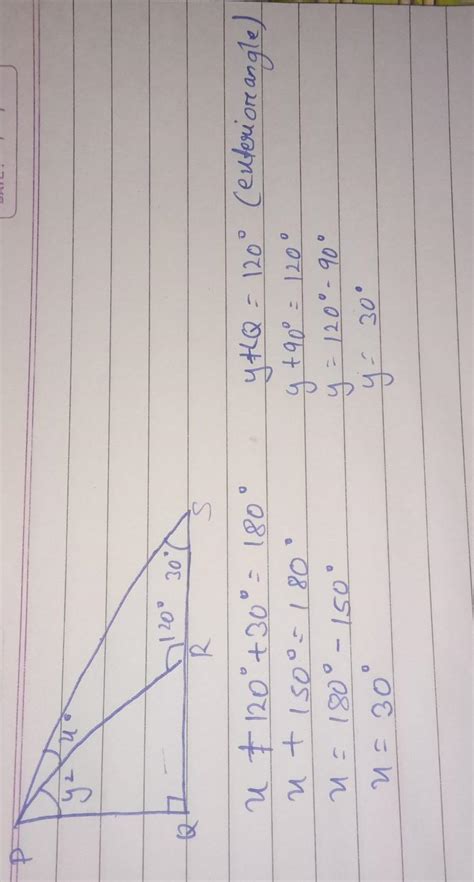 P
y²
x°
120°
30°
Q
R
S
x + 120° + 30° = 180°
x + 150° = 180°
x = 180° - 150°
x = 30°
y+∠Q = 120° (enteriorangle)
y + 90° = 120°
y = 120° - 90°
y = 30°